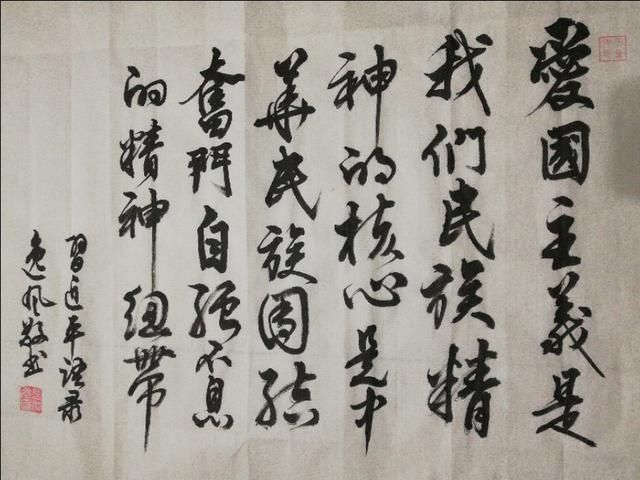 愛國主義是
我们民族精
神的核心是中
華民族團结
奮鬥自强不息
的精神紐帶
習近平語录
逸風敬书